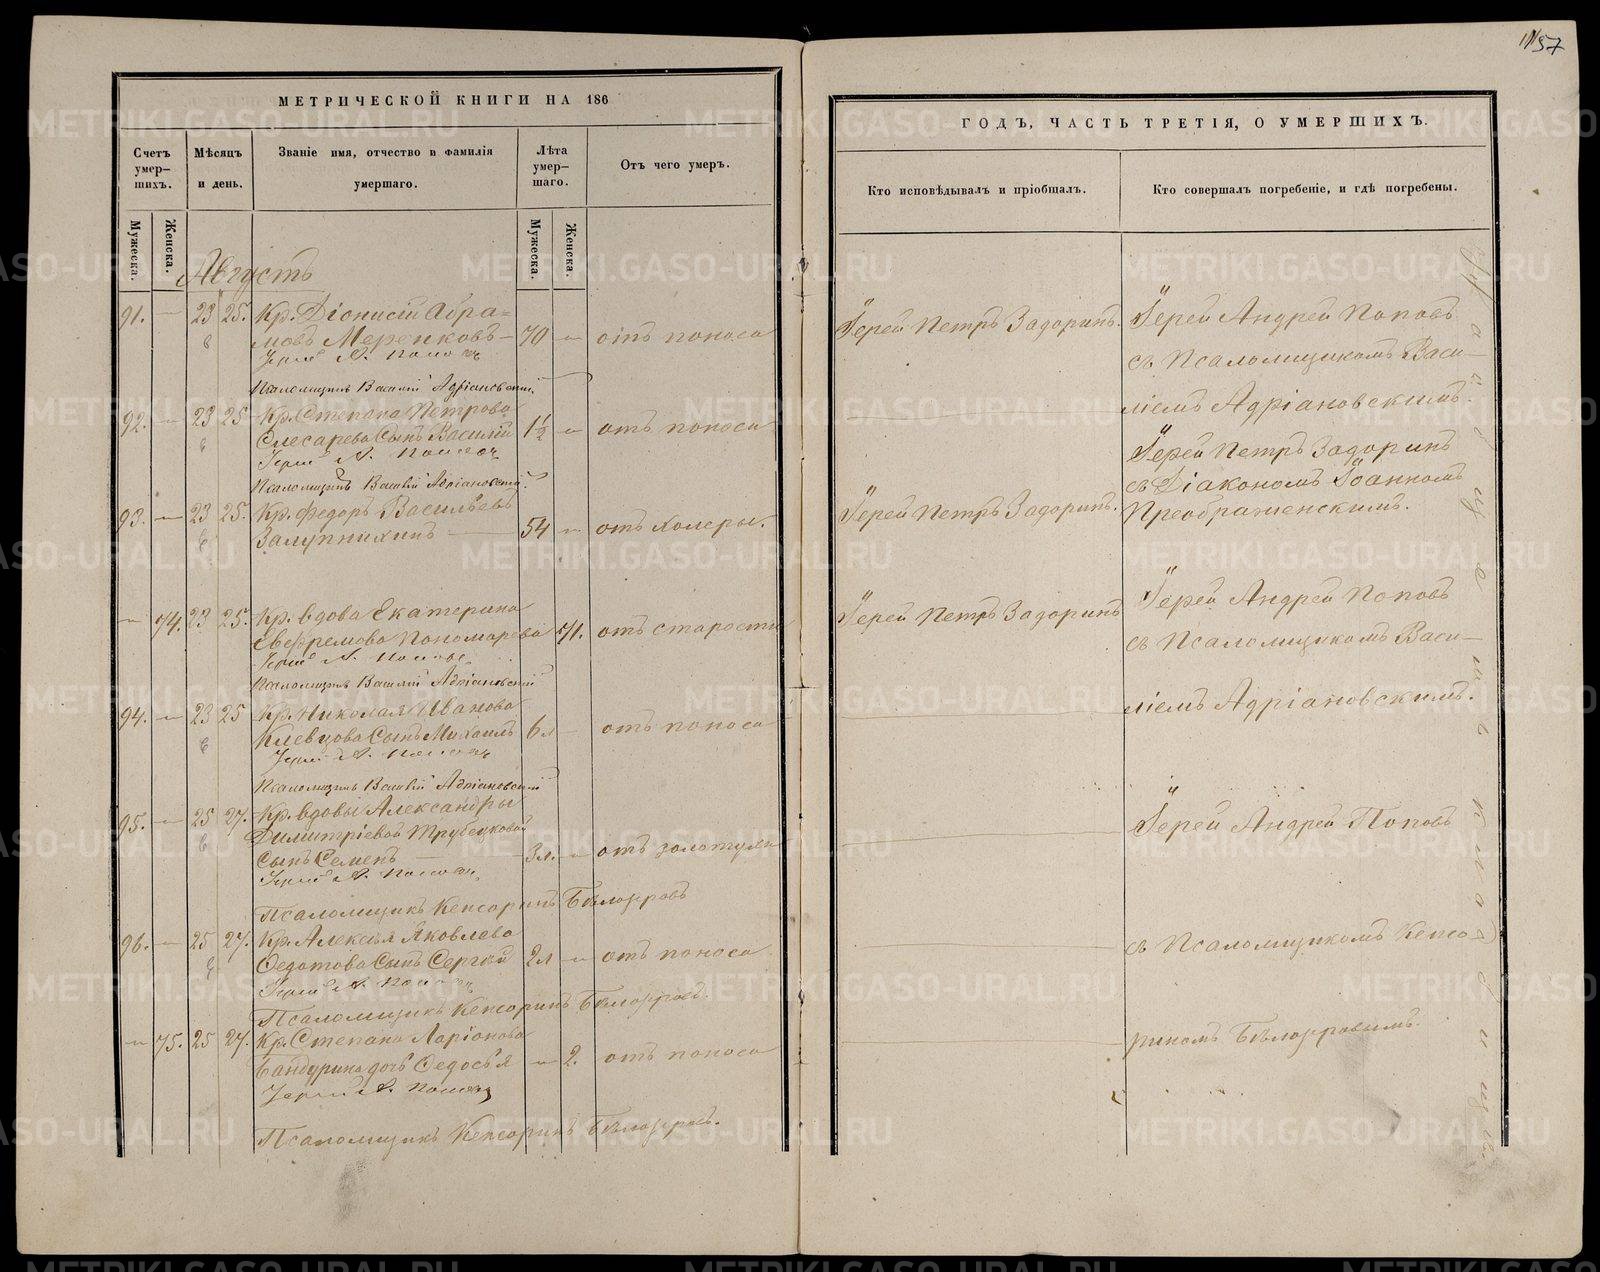 157
МЕТРИЧЕСКОЙ КНИГИ НА 186
ГОДЪ, ЧАСТЬ ТРЕТІЯ, О УМЕРШИХЪ.
Счетъ умер-шихъ.
Мѣсяцъ и день.
Званіе имя, отчество и фамилія умершаго.
Лѣта умер-шаго.
Отъ чего умеръ.
Кто исповѣдывалъ и пріобщалъ.
Кто совершалъ погребеніе, и гдѣ погребены.
Мужеска. Женска.
Мужеска. Женска.
Августъ
91. — 23 25. Кр. Діонисій Абра=
мовъ Меренковъ — 70 — отъ поноса
Псаломщикъ Василій Адріановскій
92. — 23 25 Кр. Степана Петрова
Слесарева Сынъ Василій 1½ — отъ поноса
Псаломщикъ Василій Адріановскій
93. — 23 25. Кр. Федоръ Васильевъ
54 — отъ холеры.
— 74. 23 25. Кр. вдова Екатерина
Евфремова Пономарева 71. отъ старости
Псаломщикъ Василій Адріановскій
94. — 23 25 Кр. Николая Иванова
Клевцова Сынъ Михаилъ 6 л — отъ поноса
Псаломщикъ Василій Адріановскій
95. — 25 27. Кр. вдовы Александры
Димитріевой Трубецковой
Сынъ Семенъ — 3 л. — отъ золотухи
Псаломщикъ Кенсоринъ Бѣлозеровъ
96. — 25 27. Кр. Алексѣя Яковлева
Федотова Сынъ Сергѣй 2 л — отъ поноса
Псаломщикъ Кенсоринъ Бѣлозеровъ.
— 75. 25 27. Кр. Степана Ларіонова
Бандурина дочь Федосья — 2. отъ поноса
Псаломщикъ Кенсоринъ Бѣлозеровъ.
Іерей Петръ Задоринъ.
Іерей Петръ Задоринъ.
Іерей Петръ Задоринъ
Іерей Андрей Поповъ
съ Псаломщикомъ Васи—
ліемъ Адріановскимъ.
Іерей Петръ Задоринъ
съ Діакономъ Іоанномъ
Преображенскимъ.
Іерей Андрей Поповъ
съ Псаломщикомъ Васи—
ліемъ Адріановскимъ.
Іерей Андрей Поповъ
съ Псаломщикомъ Кенсо—
риномъ Бѣлозеровымъ.
METRIKI.GASO-URAL.RU